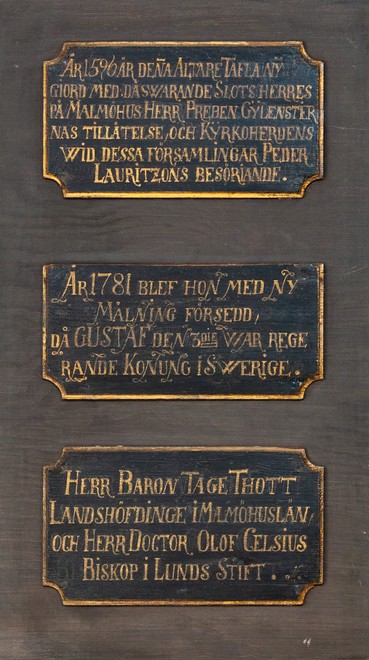 ÅR 1596 ÄR DEÑA ALTARE TAFLA NY
GIORD MED DÅWARANDE SLOTS HERRES
PÅ MALMÖHUS HERR PREBEN GYLENSTER
NAS TILLÅTELSE, OCH KYRKOHERDENS
WID DESSA FÖRSAMLINGAR PEDER
LAURITZONS BESÖRIANDE.
ÅR 1781 BLEF HON MED NY
MÅLNING FÖRSEDD,
DÅ GUSTAF DEN 3DIE WAR REGE
RANDE KONUNG I SWERIGE.
HERR BARON TAGE THOTT
LANDSHÖFDINGE I MALMÖHUS LÄN,
OCH HERR DOCTOR OLOF CELSIUS
BISKOP I LUNDS STIFT.